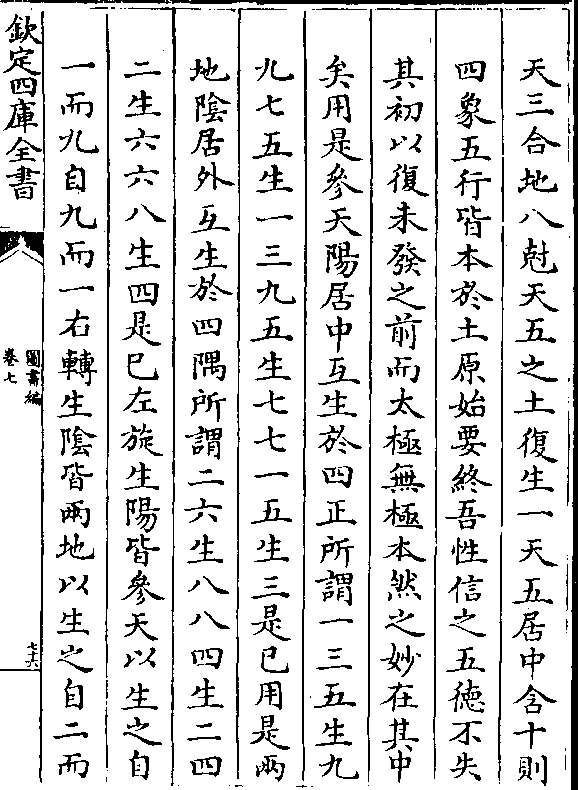 天三合地八尅天五之土復生一天五居中含十則
四象五行皆本於土原始要終吾性信之五德不失
其初以復未發之前而太極無極本然之妙在其中
矣用是參天陽居中互生於四正所謂一三五生九
九七五生一三九五生七七一五生三是已用是兩
地陰居外互生於四隅所謂二六生八八四生二四
二生六六八生四是已左旋生陽皆參天以生之自
一而九自九而一右轉生陰皆兩地以生之自二而
欽定四庫全書
圖書編
卷七
七六